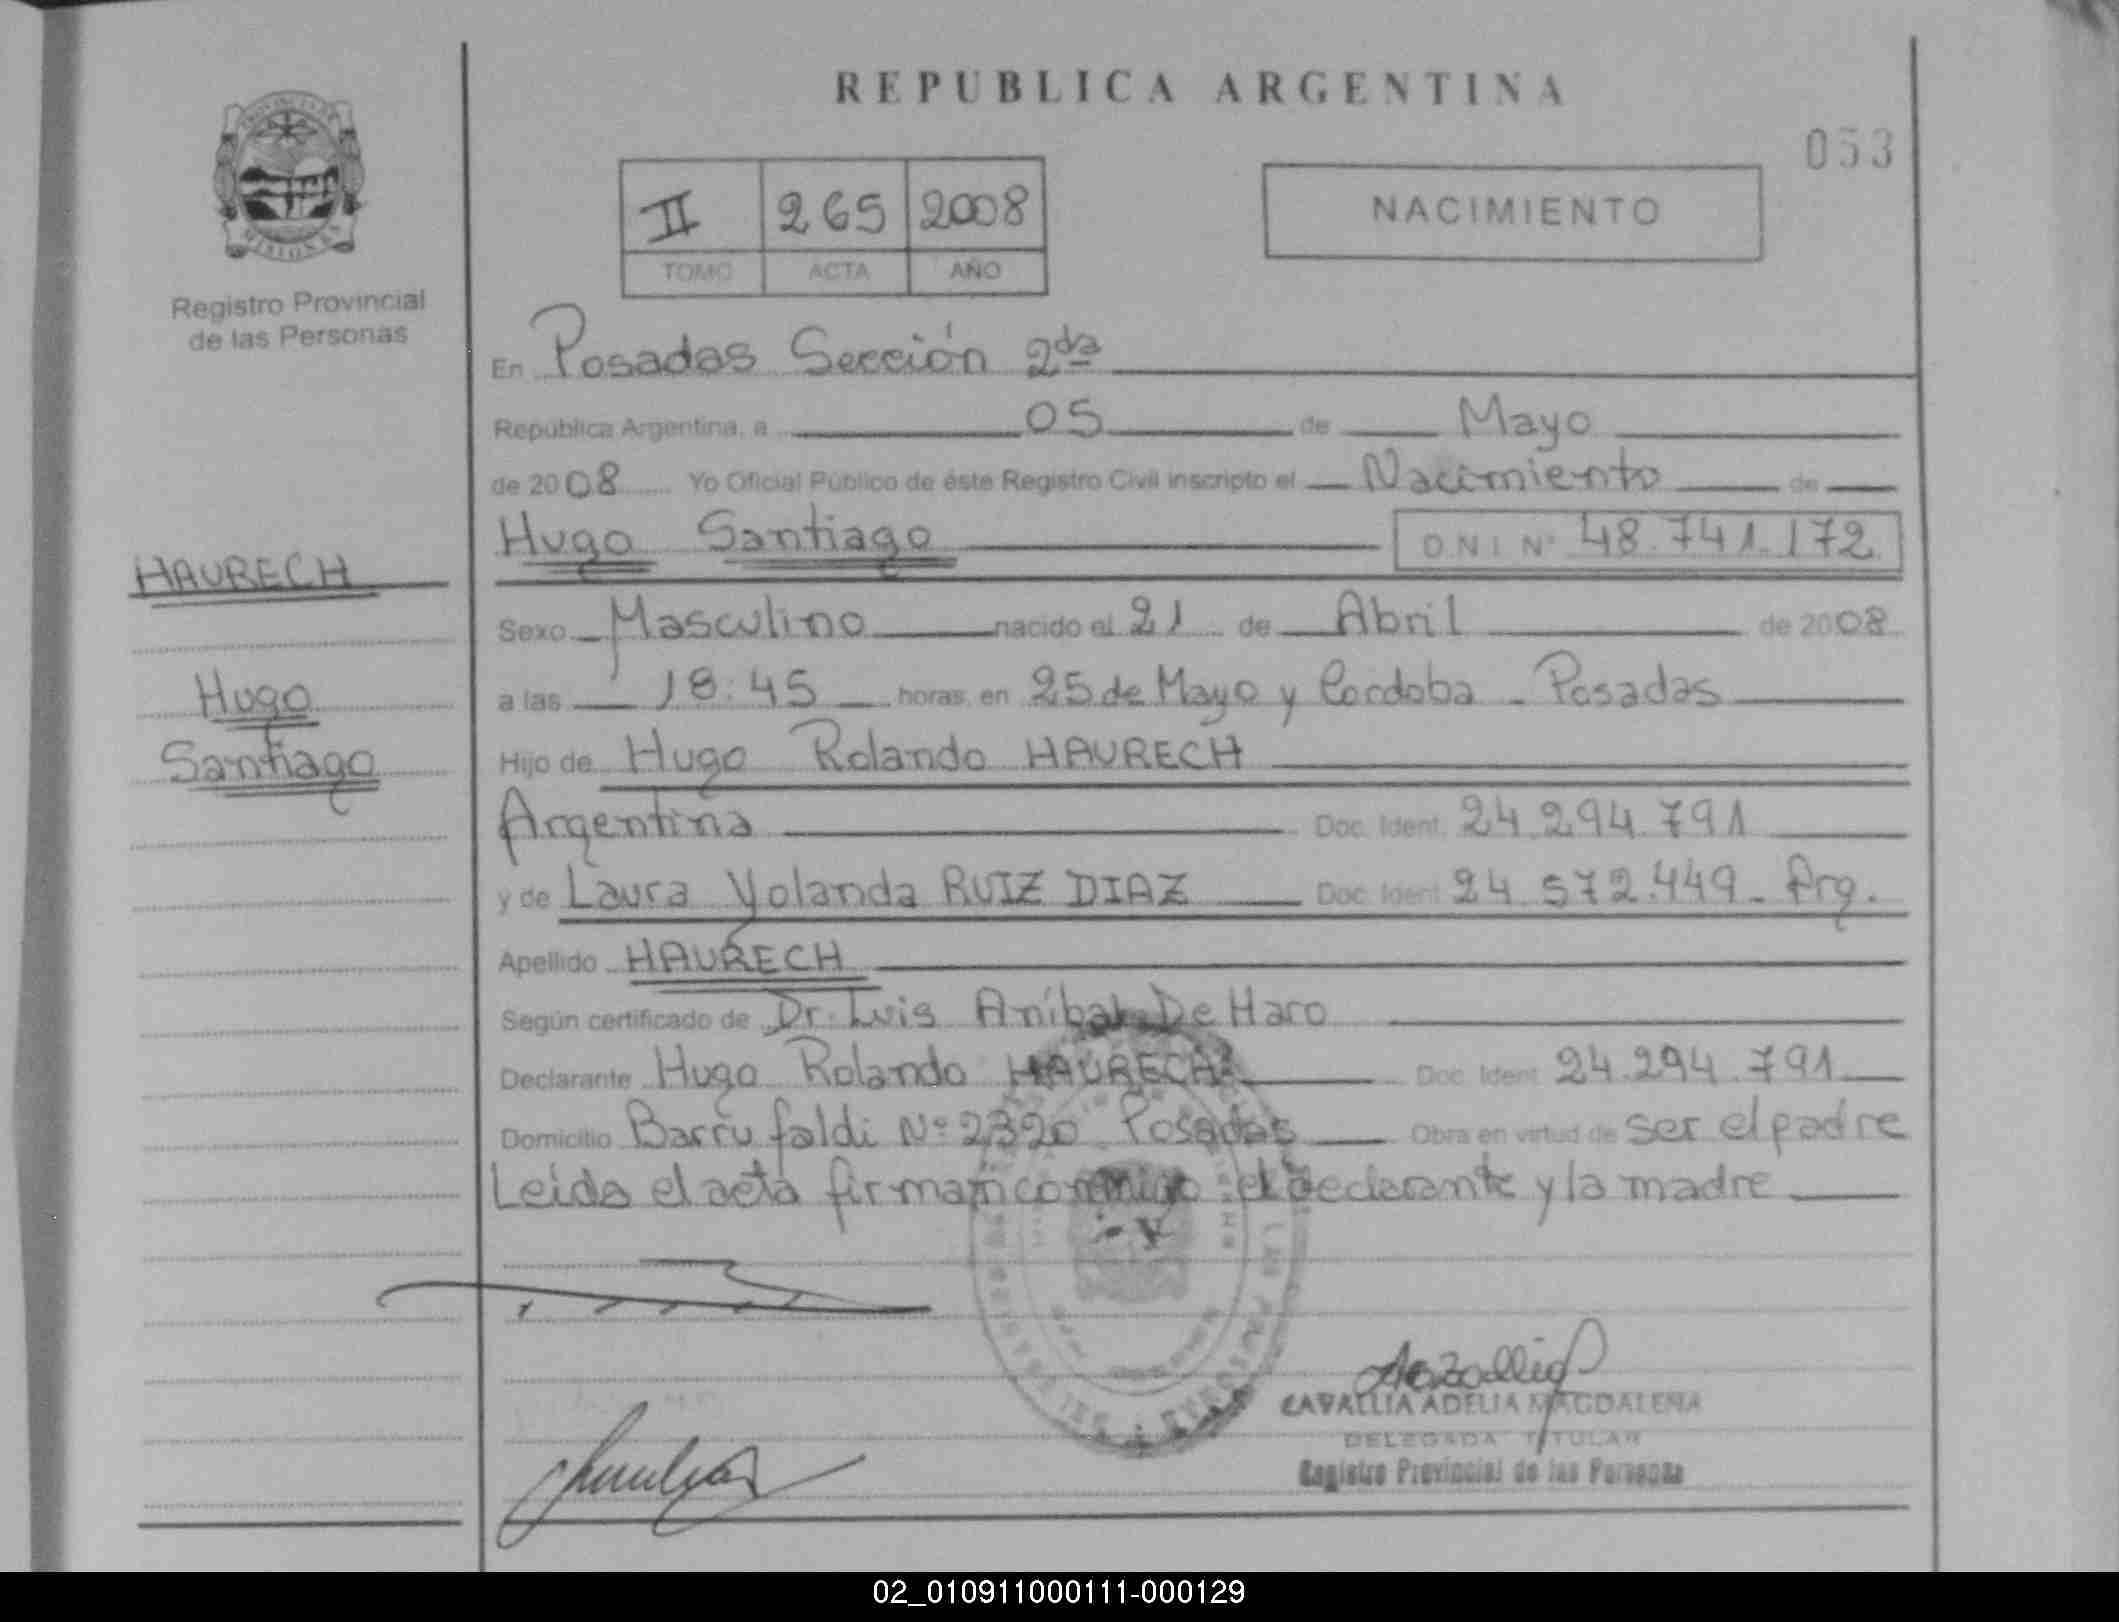 REPUBLICA ARGENTINA
053
PROVINCIA DE
MISIONES
Registro Provincial
de las Personas
II 265 2008
TOMO ACTA AÑO
NACIMIENTO
En Posadas Sección 2da
República Argentina, a 05 de Mayo
de 2008 Yo Oficial Público de éste Registro Civil inscripto el Nacimiento de
Hugo Santiago D N I Nº 48.741.172
HAURECH
Hugo
Santiago
Sexo Masculino nacido el 21 de Abril de 2008
a las 18:45 horas, en 25 de Mayo y Cordoba - Posadas
Hijo de Hugo Rolando HAURECH
Argentina Doc. Ident. 24.294.791
y de Laura Yolanda RUIZ DIAZ Doc. Ident. 24.572.449 - Arg.
Apellido HAURECH
Según certificado de Dr. Luis Aníbal De Haro
Declarante Hugo Rolando HAURECH Doc. Ident. 24.294.791
Domicilio Barrufaldi Nº 2320 Posadas Obra en virtud de ser el padre
Leída el acta firman conmigo el declarante y la madre
CAVALLIA ADELIA MAGDALENA
DELEGADA TITULAR
Registro Provincial de las Personas
02_010911000111-000129